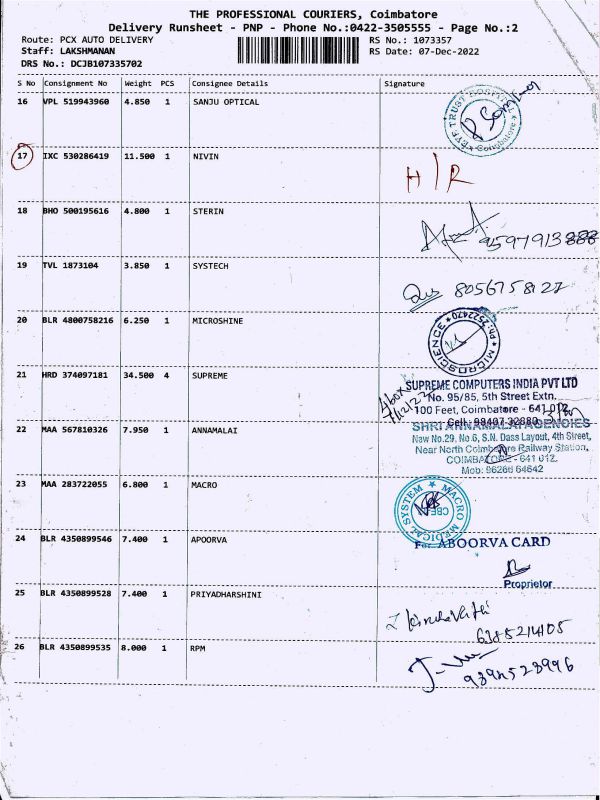 THE PROFESSIONAL COURIERS, Coimbatore
Delivery Runsheet - PNP - Phone No.:0422-3505555 - Page No.:2
Route: PCX AUTO DELIVERY RS No.: 1073357
Staff: LAKSHMANAN RS Date: 07-Dec-2022
DRS No.: DCJB107335702
S No Consignment No Weight PCS Consignee Details Signature
16 VPL 519943960 4.850 1 SANJU OPTICAL
EYE TRUST HOSPITAL
Coimbatore
17 IXC 530286419 11.500 1 NIVIN
H/R
18 BHO 500195616 4.800 1 STERIN
19 TVL 1873104 3.850 1 SYSTECH
8056758127
20 BLR 4800758216 6.250 1 MICROSHINE
MICROSCIENCE
PH: 2522470
21 HRD 374097181 34.500 4 SUPREME
4 box
7/12/22
SUPREME COMPUTERS INDIA PVT LTD
No. 95/85, 5th Street Extn.
100 Feet, Coimbatore - 641 012
22 MAA 567810326 7.950 1 ANNAMALAI
SHRI ANNAMALAI AGENCIES
New No.29, No.6, S.N. Dass Layout, 4th Street,
Near North Coimbatore Railway Station,
COIMBATORE - 641 012.
Mob: 96266 64642
23 MAA 283722055 6.800 1 MACRO
MACRO MEDICAL SYSTEM
CBE
24 BLR 4350899546 7.400 1 APOORVA
For ABOORVA CARD
Proprietor
25 BLR 4350899528 7.400 1 PRIYADHARSHINI
6385214105
26 BLR 4350899535 8.000 1 RPM